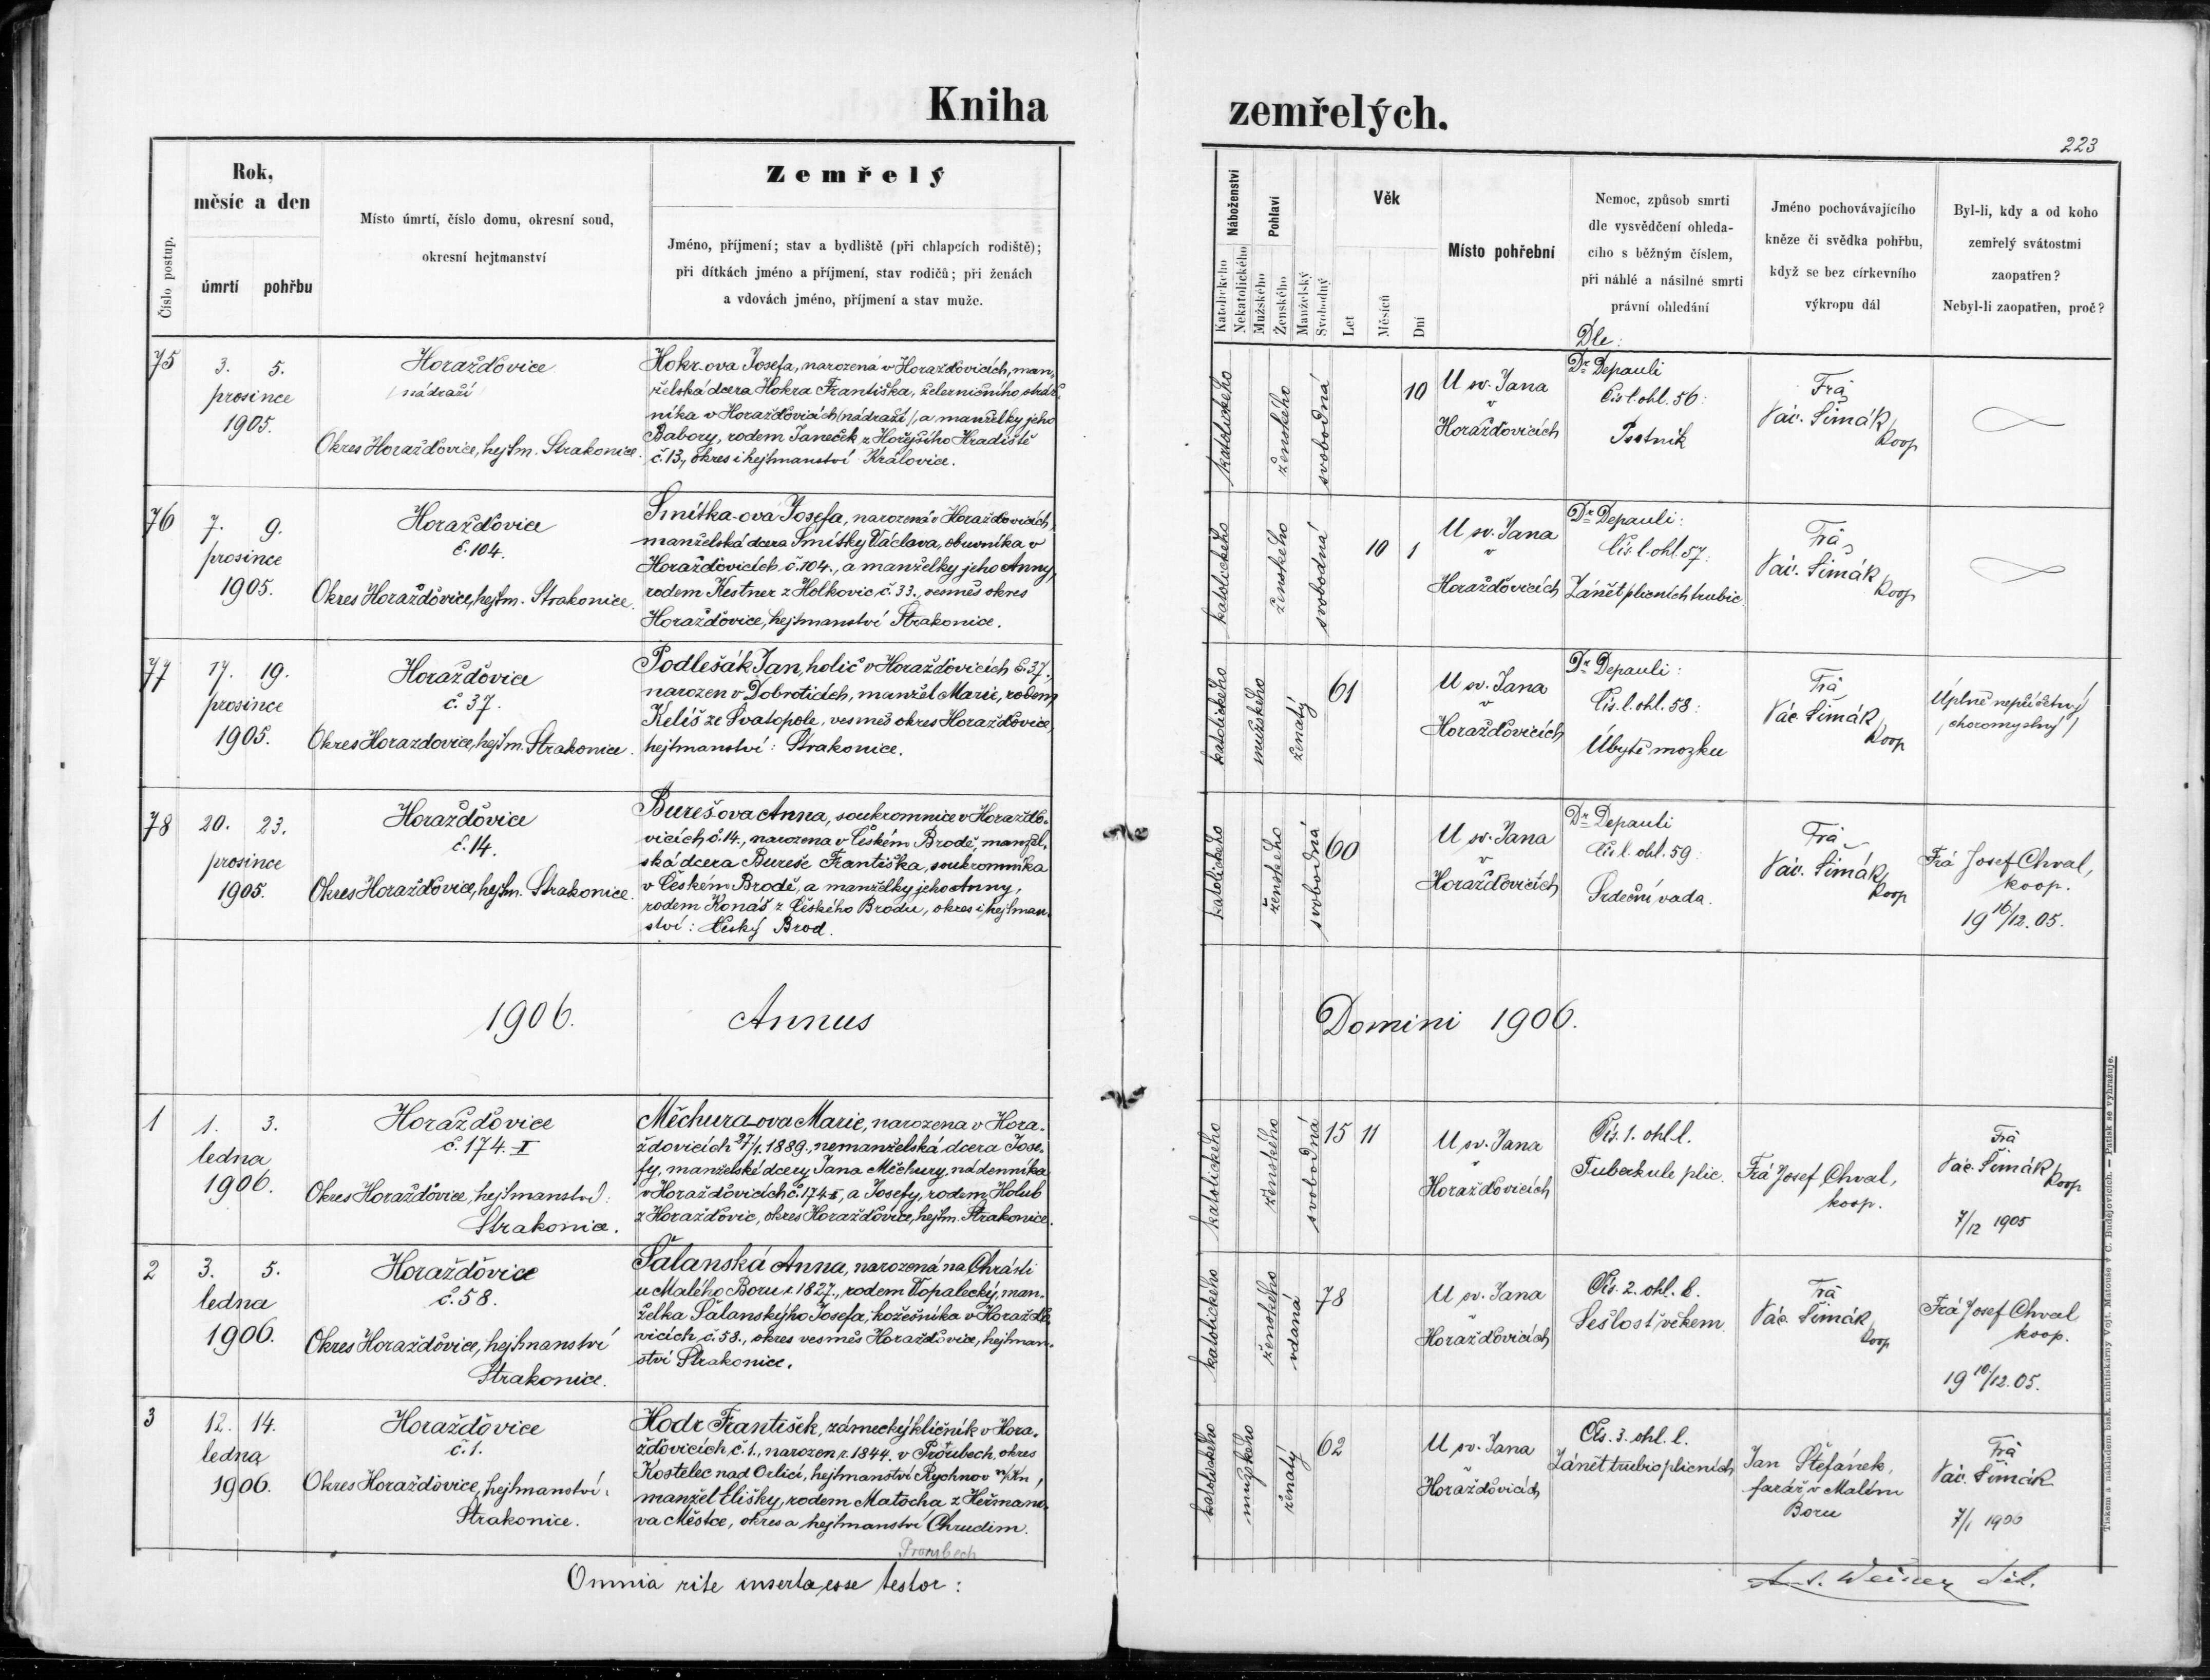 Kniha zemřelých.
223
Číslo postup.
Rok,
měsíc a den
úmrtí pohřbu
Místo úmrtí, číslo domu, okresní soud,
okresní hejtmanství
Zemřelý
Jméno, příjmení; stav a bydliště (při chlapcích rodiště);
při dítkách jméno a příjmení, stav rodičů; při ženách
a vdovách jméno, příjmení a stav muže.
Náboženství
Katolického
Nekatolického
Pohlaví
Mužského
Ženského
Manželský
Svobodný
Věk
Let
Měsíců
Dní
Místo pohřební
Nemoc, způsob smrti
dle vysvědčení ohleda-
cího s běžným číslem,
při náhlé a násilné smrti
právní ohledání
Dle:
Jméno pochovávajícího
kněze či svědka pohřbu,
když se bez církevního
výkropu dál
Byl-li, kdy a od koho
zemřelý svátostmi
zaopatřen?
Nebyl-li zaopatřen, proč?
75
3. 5.
prosince
1905.
Horažďovice
(nádraží)
Okres Horažďovice, hejtm. Strakonice.
Hokr-ova Josefa, narozená v Horažďovicích, man-
želská dcera Hokra Františka, železničního stráž-
níka v Horažďovicích (nádraží), a manželky jeho
Babory, rodem Janeček z Hořejšího Hradiště
č. 13., okres i hejtmanství Královice.
katolického
ženského
svobodná
10
U sv. Jana
v
Horažďovicích
Dr. Depauli
Čís. l. ohl. 56:
Psotník
Frá
Vác. Šimák
koop
76
7. 9.
prosince
1905.
Horažďovice
č. 104.
Okres Horažďovice, hejtm. Strakonice.
Smitka-ova Josefa, narozená v Horažďovicích,
manželská dcera Smitky Václava, obuvníka v
Horažďovicích č. 104., a manželky jeho Anny,
rodem Kestner z Holkovic č. 33., vesměs okres
Horažďovice, hejtmanství Strakonice.
katolického
ženského
svobodná
10 1
U sv. Jana
v
Horažďovicích
Dr. Depauli:
Čís. l. ohl. 57.
Zánět plicních trubic.
Frá
Vác. Šimák
koop
77
17. 19.
prosince
1905.
Horažďovice
č. 37.
Okres Horazdovice, hejtm. Strakonice.
Podlešák Jan, holič v Horažďovicích č. 37.,
narozen v Dobroticích, manžel Marie, rodem
Keliš ze Svatopole, vesměs okres Horažďovice,
hejtmanství: Strakonice.
katolického
mužského
ženatý
61
U sv. Jana
v
Horažďovicích
Dr. Depauli:
Čís. l. ohl. 58:
Úbytě mozku
Frá
Vác. Šimák
koop
Úplně nepříčetný
(choromyslný)
78
20. 23.
prosince
1905.
Horažďovice
č. 14.
Okres Horažďovice, hejtm. Strakonice.
Burešova Anna, soukromnice v Horažďo-
vicích č. 14., narozena v Českém Brodě, manžel-
ská dcera Bureše Františka, soukromníka
v Českém Brodě, a manželky jeho Anny,
rodem Konáš z Českého Brodu, okres i hejtman-
ství: Český Brod.
katolického
ženského
svobodná
60
U sv. Jana
v
Horažďovicích
Dr. Depauli
Čís. l. ohl. 59:
Srdeční vada.
Frá
Vác. Šimák
koop
Frá Josef Chval,
koop.
19 16/12. 05.
1906. Annus Domini 1906.
1
1. 3.
ledna
1906.
Horažďovice
č. 174. II
Okres Horažďovice, hejtmanství:
Strakonice.
Měchura-ova Marie, narozena v Hora-
ždovicích 27/1. 1889., nemanželská dcera Jose-
fy, manželské dcery Jana Měchury, nádenníka
v Horažďovicích č. 174 II, a Josefy, rodem Holub
z Horažďovic, okres Horažďovice, hejtm. Strakonice.
katolického
ženského
svobodná
15 11
U sv. Jana
v
Horažďovicích
Čís. 1. ohl. l.
Tuberkule plic.
Frá Josef Chval,
koop.
Frá
Vác. Šimák
koop
7/12 1905
2
3. 5.
ledna
1906.
Horažďovice
č. 58.
Okres Horažďovice, hejtmanství
Strakonice.
Šalanská Anna, narozená na Chrásti
u Malého Boru r. 1827., rodem Topalecký, man-
želka Šalanskýho Josefa, kožešníka v Horažďo-
vicích č. 58., okres vesměs Horažďovice, hejtman-
ství Strakonice.
katolického
ženského
vdaná
78
U sv. Jana
v
Horažďovicích
Čís. 2. ohl. l.
Sešlost věkem.
Frá
Vác. Šimák
koop
Frá Josef Chval
koop.
19 10/12. 05.
3
12. 14.
ledna
1906.
Horažďovice
č. 1.
Okres Horažďovice, hejtmanství:
Strakonice.
Hodr František, zámecký klíčník v Hora-
žďovicích č. 1., narozen r. 1844. v Prorubech, okres
Kostelec nad Orlicí, hejtmanství Rychnov n/Kn,
manžel Elišky, rodem Matocha z Heřmano-
va Městce, okres a hejtmanství Chrudim.
katolického
mužského
ženatý
62
U sv. Jana
v
Horažďovicích
Čís. 3. ohl. l.
Zánět trubic plicních
Jan Štefánek,
farář v Malém
Boru
Frá
Vác. Šimák
7/1 1906
Omnia rite inserta esse testor:
Tiskem a nákladem bisk. knihtiskárny Vojt. Matouše v Č. Budějovicích. — Patisk se vyhražuje.